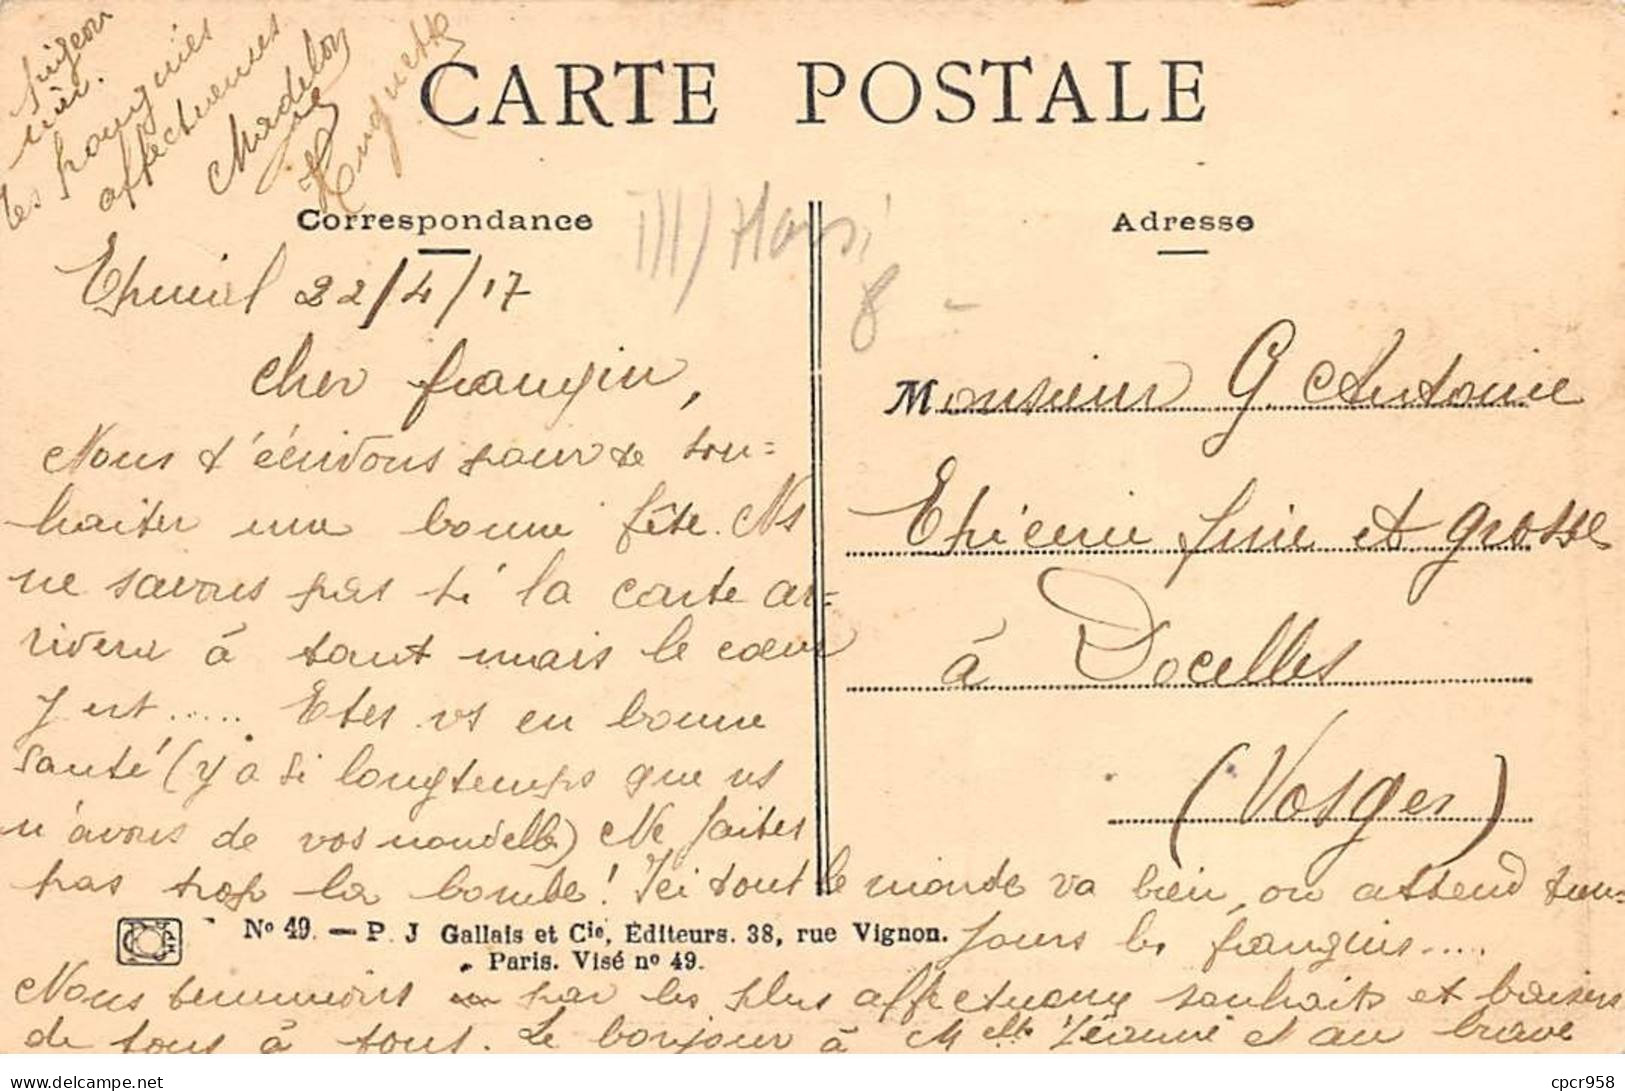 CARTE POSTALE
Correspondance
Adresse
22/4/17
Cher frangin,
Nous t'écrivons pour te sou=
haiter une bonne fête. Ns
ne savons pas si la carte ar=
rivera à tant mais le cœur
y est..... Etes vs en bonne
santé (y a si longtemps que ns
n'avons de vos nouvelles) Ne faites
pas trop la bombe! Ici tout le monde va bien, on attend tou=
jours les frangins.....
Nous terminons par les plus affectueux souhaits et baisers
de tous à tous. Le bonjour à Melle Jeanne et au brave
les frangines
affectueuses
Madelon
Huguette
Hansi
8 -
Monsieur G. Antoine
Epicerie fine et grosse
à Docelles
(Vosges)
No 49. — P. J Gallais et Cie, Éditeurs. 38, rue Vignon.
Paris. Visé no 49.
delcampe.net
cpcr958